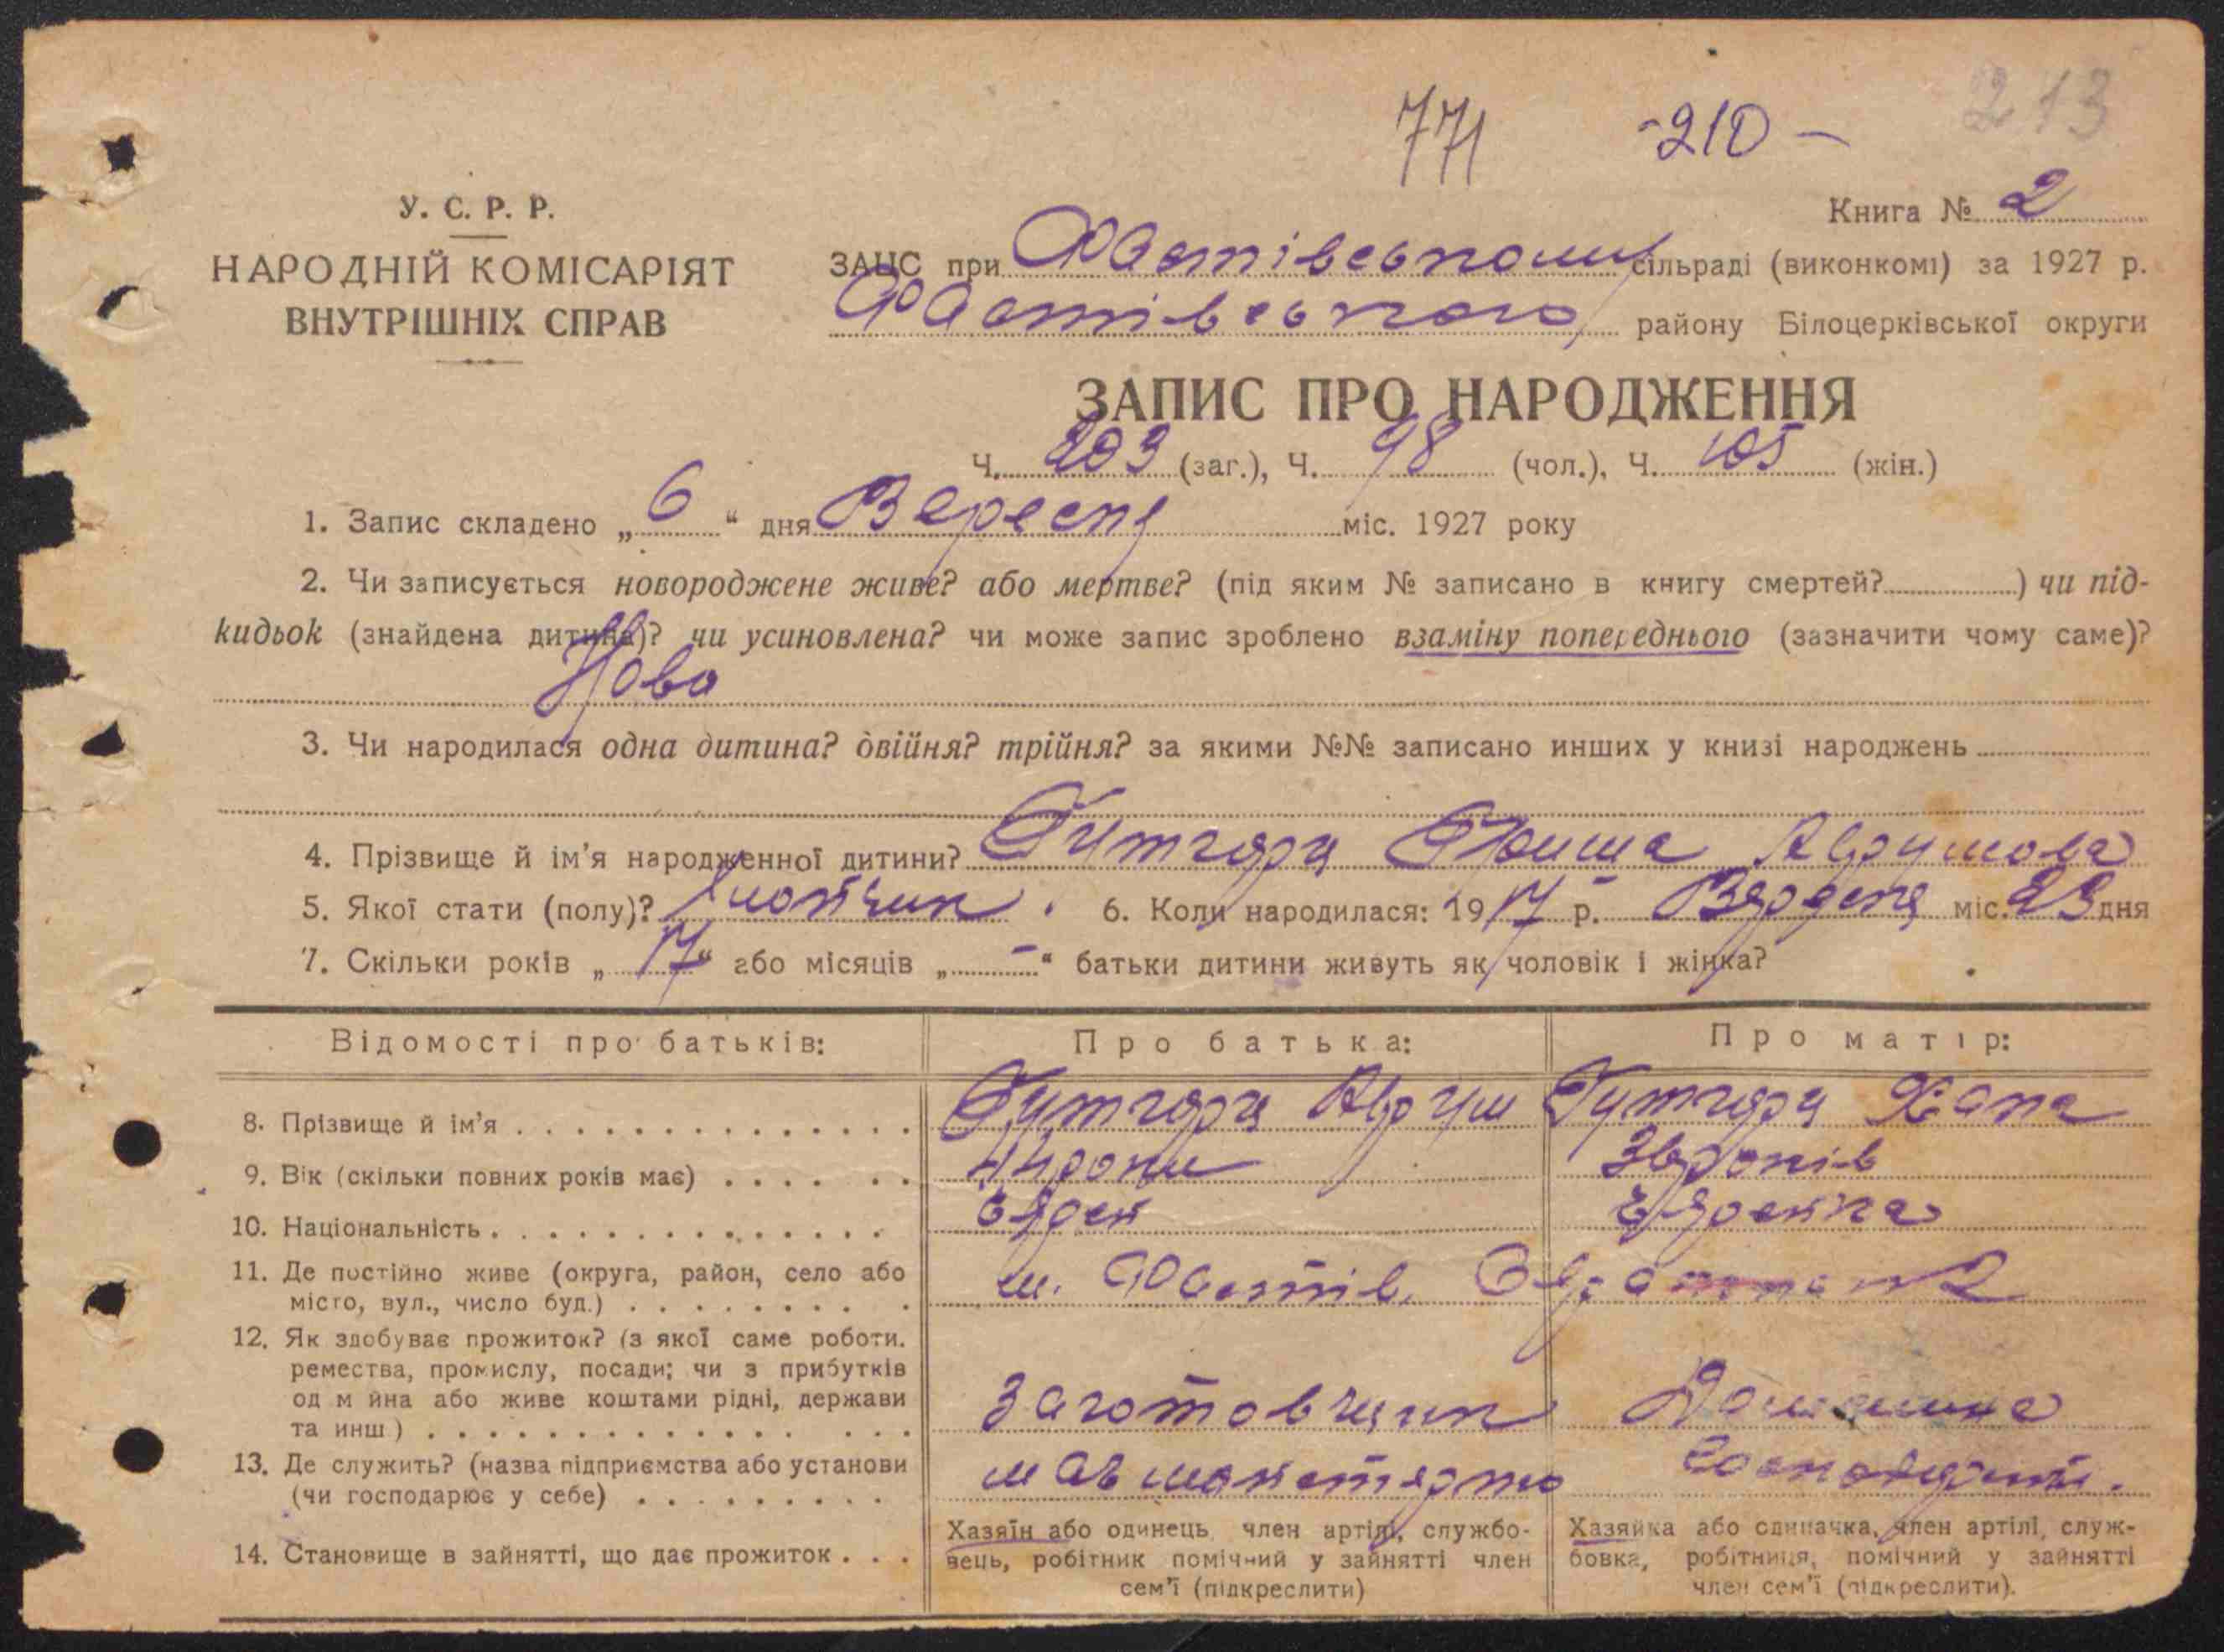 771 -210- 213
Книга № 2
У. С. Р. Р.
НАРОДНІЙ КОМІСАРІЯТ
ВНУТРІШНІХ СПРАВ
ЗАЦС при Фастівському сільраді (виконкомі) за 1927 р.
Фастівського району Білоцерківської округи
ЗАПИС ПРО НАРОДЖЕННЯ
Ч. 203 (заг.), Ч. 98 (чол.), Ч. 105 (жін.)
1. Запис складено „ 6 “ дня Вересня міс. 1927 року
2. Чи записується новороджене живе? або мертве? (під яким № записано в книгу смертей? ) чи під-
кидьок (знайдена дитина)? чи усиновлена? чи може запис зроблено взаміну попереднього (зазначити чому саме)?
3. Чи народилася одна дитина? двійня? трійня? за якими №№ записано инших у книзі народжень
4. Прізвище й ім’я народженної дитини? Гутгарц Аврумова
5. Якої стати (полу)? Хлопчик. 6. Коли народилася: 1917 р. міс. 23 дня
7. Скільки років „ 17 “ або місяців „ – “ батьки дитини живуть як чоловік і жінка?
Відомості про батьків: Про батька: Про матір:
8. Прізвище й ім’я Гутгарц Аврум Гутгарц Хана
9. Вік (скільки повних років має)
10. Національність
11. Де постійно живе (округа, район, село або
місто, вул., число буд.) м. Фастів,
12. Як здобуває прожиток? (з якої саме роботи.
ремества, промислу, посади; чи з прибутків
од м йна або живе коштами рідні, держави
та инш) Заготовщик Домашня
13. Де служить? (назва підприємства або установи
(чи господарює у себе)
14. Становище в зайнятті, що дає прожиток
Хазяїн або одинець, член артілі, службо-
вець, робітник помічний у зайнятті член
сем’ї (підкреслити)
Хазяйка або одиначка, член артілі, служ-
бовка, робітниця, помічний у зайнятті
член сем’ї (підкреслити).